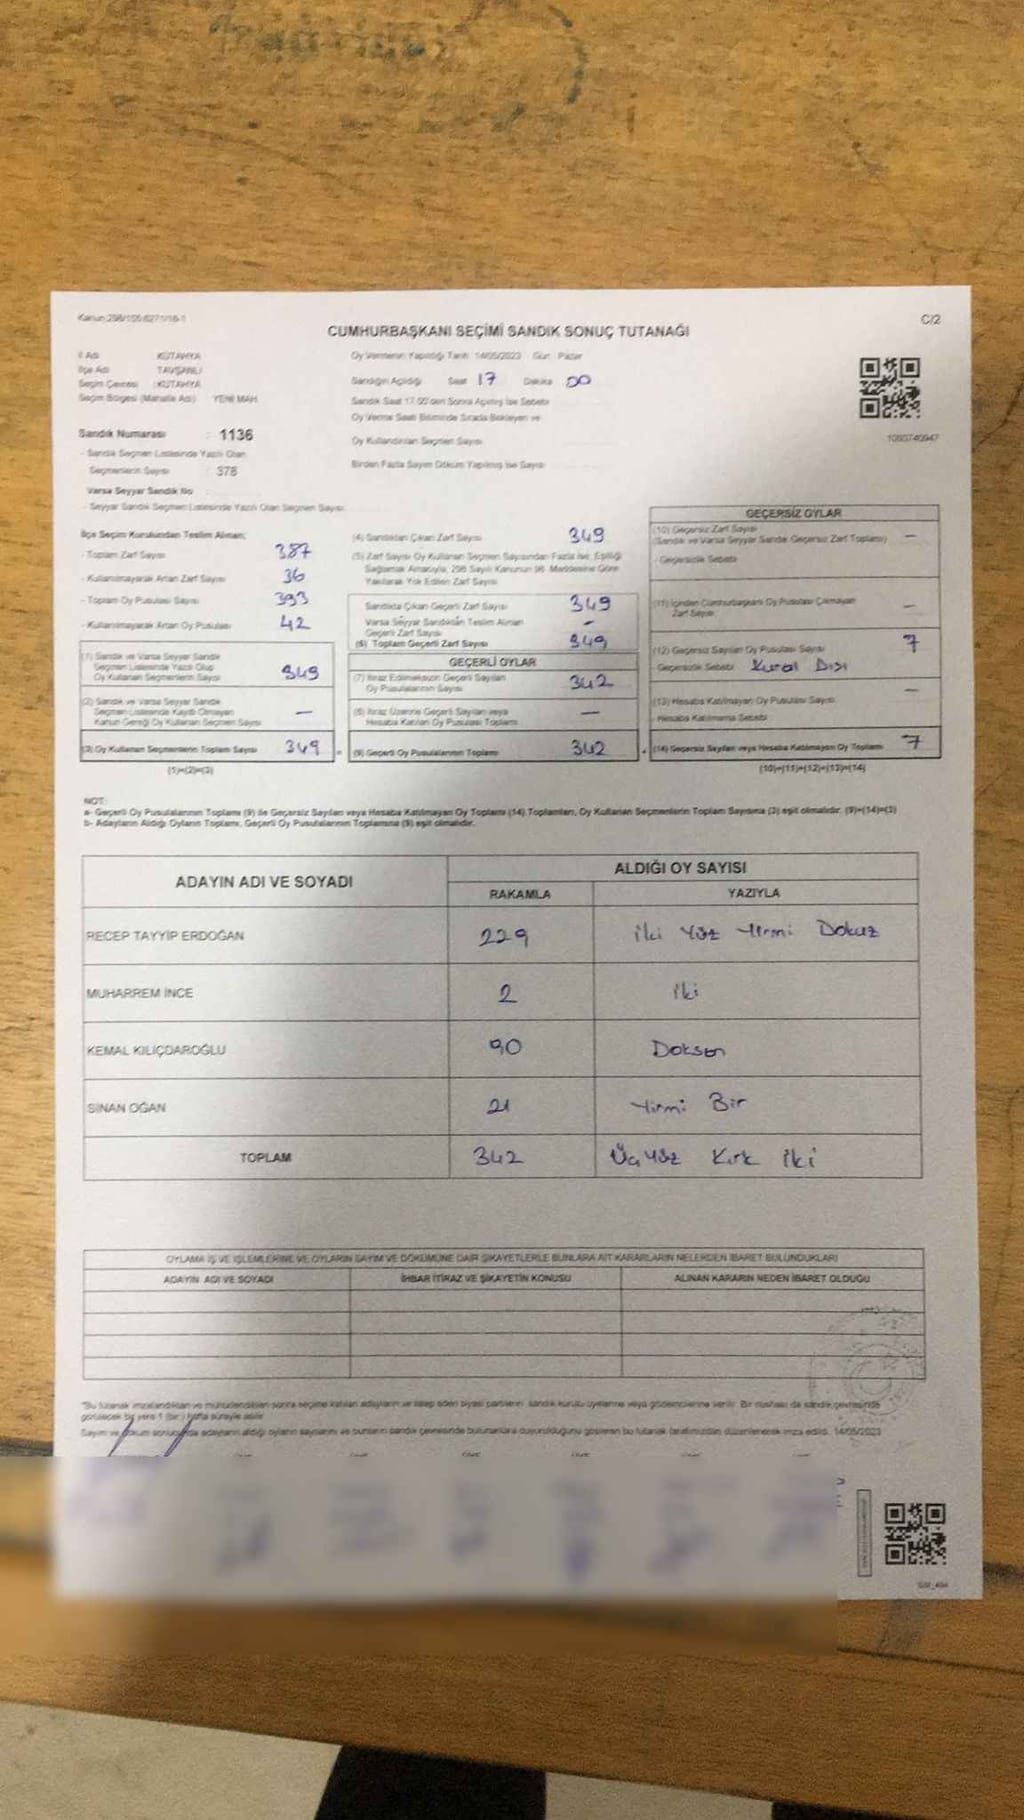 Kanun:298/105-6271/16-1
C/2
CUMHURBAŞKANI SEÇİMİ SANDIK SONUÇ TUTANAĞI
İl Adı : KÜTAHYA
İlçe Adı : TAVŞANLI
Seçim Çevresi : KÜTAHYA
Seçim Bölgesi (Mahalle Adı) YENİ MAH.
Oy Vermenin Yapıldığı Tarih 14/05/2023 Gün Pazar
Sandığın Açıldığı Saat 17 Dakika 00
Sandık Saat 17.00'den Sonra Açılmış İse Sebebi
Oy Verme Saati Bitiminde Sırada Bekleyen ve
Oy Kullandırılan Seçmen Sayısı
Birden Fazla Sayım Döküm Yapılmış İse Sayısı
1093740947
Sandık Numarası : 1136
- Sandık Seçmen Listesinde Yazılı Olan
Seçmenlerin Sayısı : 378
Varsa Seyyar Sandık No
- Seyyar Sandık Seçmen Listesinde Yazılı Olan Seçmen Sayısı
İlçe Seçim Kurulundan Teslim Alınan;
- Toplam Zarf Sayısı 387
- Kullanılmayarak Artan Zarf Sayısı 36
- Toplam Oy Pusulası Sayısı 393
- Kullanılmayarak Artan Oy Pusulası 42
(1) Sandık ve Varsa Seyyar Sandık
Seçmen Listesinde Yazılı Olup
Oy Kullanan Seçmenlerin Sayısı 349
(2) Sandık ve Varsa Seyyar Sandık
Seçmen Listesinde Kayıtlı Olmayan
Kanun Gereği Oy Kullanan Seçmen Sayısı —
(3) Oy Kullanan Seçmenlerin Toplam Sayısı 349
(1)+(2)=(3)
(4) Sandıktan Çıkan Zarf Sayısı 349
(5) Zarf Sayısı Oy Kullanan Seçmen Sayısından Fazla İse, Eşitliği
Sağlamak Amacıyla, 298 Sayılı Kanunun 98. Maddesine Göre
Yakılarak Yok Edilen Zarf Sayısı
Sandıkta Çıkan Geçerli Zarf Sayısı 349
Varsa Seyyar Sandıktan Teslim Alınan
Geçerli Zarf Sayısı -
(6) Toplam Geçerli Zarf Sayısı 349
GEÇERLİ OYLAR
(7) İtiraz Edilmeksizin Geçerli Sayılan
Oy Pusulalarının Sayısı 342
(8) İtiraz Üzerine Geçerli Sayılan veya
Hesaba Katılan Oy Pusulası Toplamı —
(9) Geçerli Oy Pusulalarının Toplamı 342
GEÇERSİZ OYLAR
(10) Geçersiz Zarf Sayısı
(Sandık ve Varsa Seyyar Sandık Geçersiz Zarf Toplamı) —
- Geçersizlik Sebebi
(11) İçinden Cumhurbaşkanı Oy Pusulası Çıkmayan
Zarf Sayısı —
(12) Geçersiz Sayılan Oy Pusulası Sayısı 7
- Geçersizlik Sebebi Kural Dışı
(13) Hesaba Katılmayan Oy Pusulası Sayısı —
- Hesaba Katılmama Sebebi
(14) Geçersiz Sayılan veya Hesaba Katılmayan Oy Toplamı 7
(10)+(11)+(12)+(13)=(14)
NOT:
a- Geçerli Oy Pusulalarının Toplamı (9) ile Geçersiz Sayılan veya Hesaba Katılmayan Oy Toplamı (14) Toplamları, Oy Kullanan Seçmenlerin Toplam Sayısına (3) eşit olmalıdır. (9)+(14)=(3)
b- Adayların Aldığı Oyların Toplamı, Geçerli Oy Pusulalarının Toplamına (9) eşit olmalıdır.
ADAYIN ADI VE SOYADI
ALDIĞI OY SAYISI
RAKAMLA YAZIYLA
RECEP TAYYİP ERDOĞAN 229 İki Yüz Yirmi Dokuz
MUHARREM İNCE 2 İki
KEMAL KILIÇDAROĞLU 90 Doksan
SİNAN OĞAN 21 Yirmi Bir
TOPLAM 342 Üç Yüz Kırk İki
OYLAMA İŞ VE İŞLEMLERİNE VE OYLARIN SAYIM VE DÖKÜMÜNE DAİR ŞİKAYETLERLE BUNLARA AİT KARARLARIN NELERDEN İBARET BULUNDUKLARI
ADAYIN ADI VE SOYADI İHBAR İTİRAZ VE ŞİKAYETİN KONUSU ALINAN KARARIN NEDEN İBARET OLDUĞU
"Bu tutanak imzalandıktan ve mühürlendikten sonra seçime katılan adayların ve talep eden siyasi partilerin sandık kurulu üyelerine veya gözlemcilerine verilir. Bir nüshası da sandık çevresinde
görülecek bir yere 1 (bir) hafta süreyle asılır.
Sayım ve döküm sonucunda adayların aldığı oyların sayısını ve bunların sandık çevresinde bulunanlara duyurulduğunu gösteren bu tutanak tarafımızdan düzenlenerek imza edildi. 14/05/2023